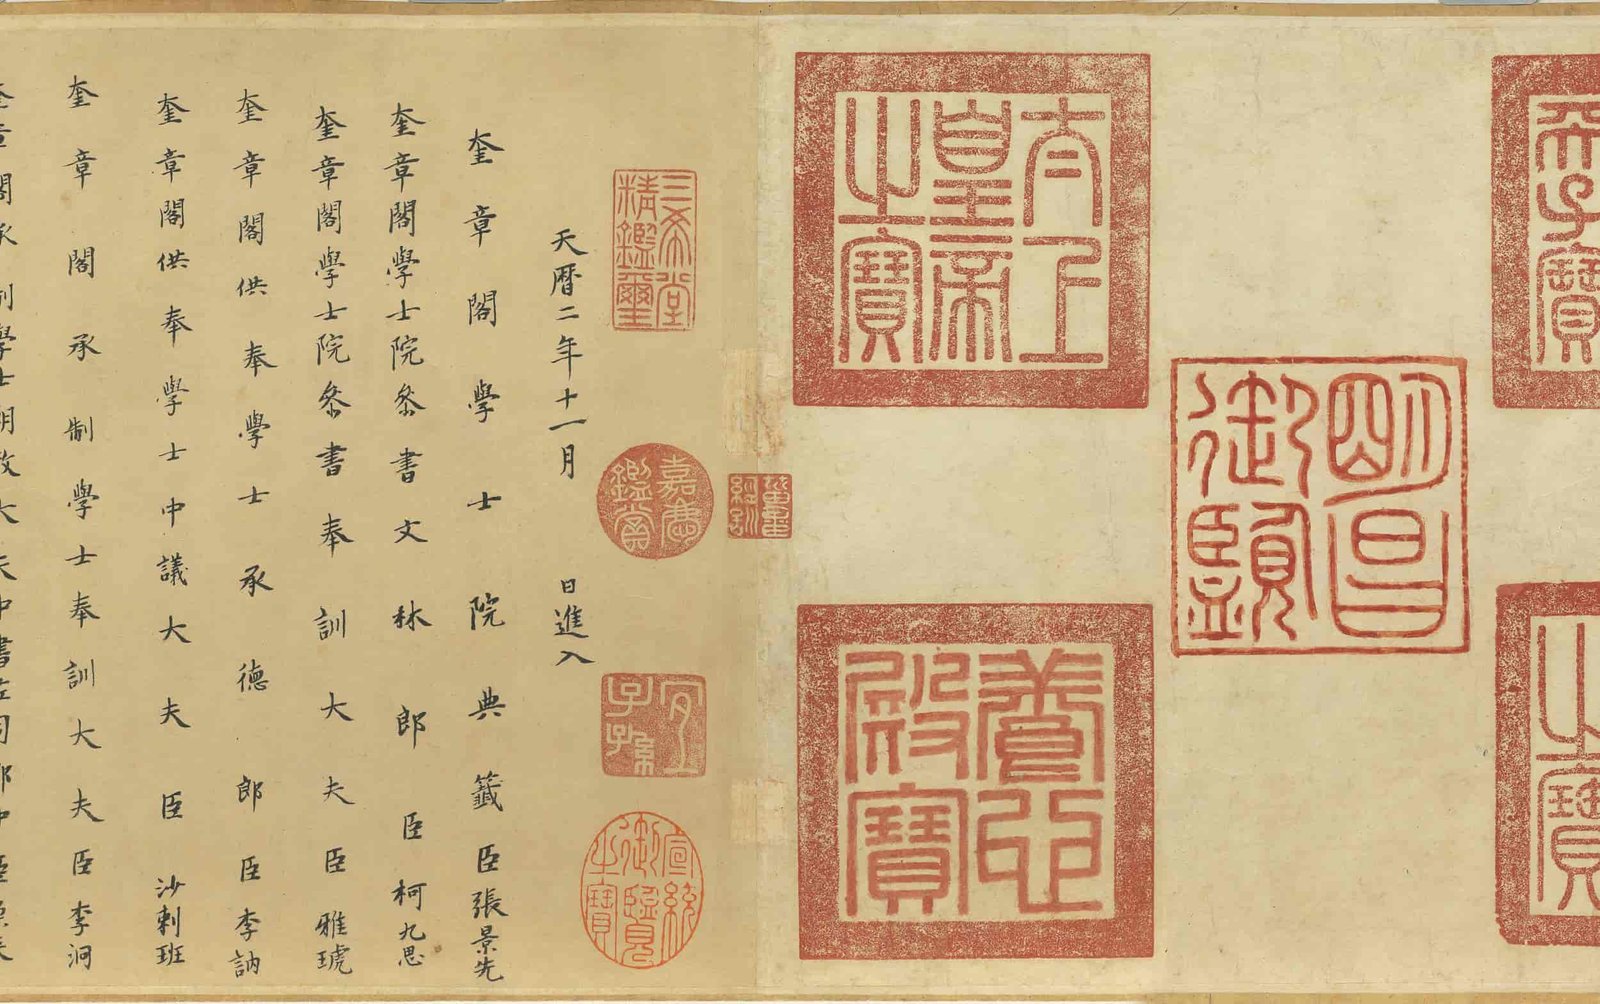 太上
皇帝
之寶
養心
殿寶
之寶
三希堂
精鑑璽
嘉慶
鑑賞
宜
子孫
宣統
御覽
之寶
天曆二年十一月 日進入
奎章閣學士院典籤臣張景先
奎章閣學士院叅書文林郎臣柯九思
奎章閣學士院叅書奉訓大夫臣雅琥
奎章閣供奉學士承德郎臣李訥
奎章閣供奉學士中議大夫臣沙剌班
奎章閣承制學士奉訓大夫臣李泂